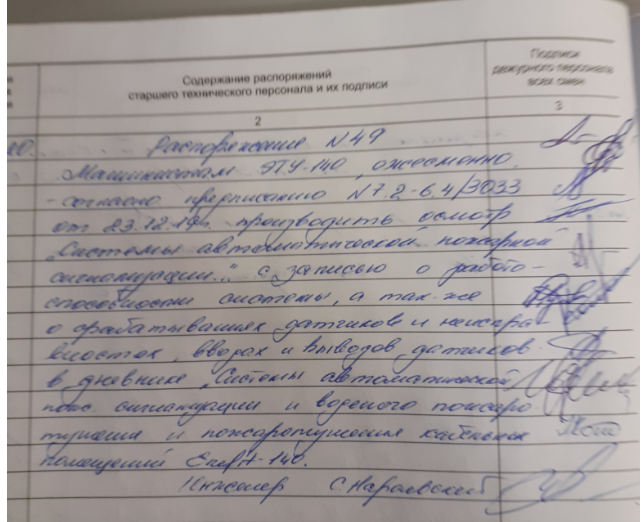 Содержание распоряжений
старшего технического персонала и их подписи
Подписи
дежурного персонала
всех смен
2
3
Распоряжение N49
Машинистам ЭТУ-140, ежесменно,
- согласно предписанию N7.2-6.4/3033
от 23.12.19г. производить осмотр
„Системы автоматической пожарной
сигнализации..." с записью о работо-
способности системы, а так-же
о срабатываниях датчиков и неиспра-
вностях, вводах и выводов датчиков
в дневнике „Системы автоматической
пож. сигнализации и водяного пожаро
тушения и пожаротушения кабельных
помещений
Инженер